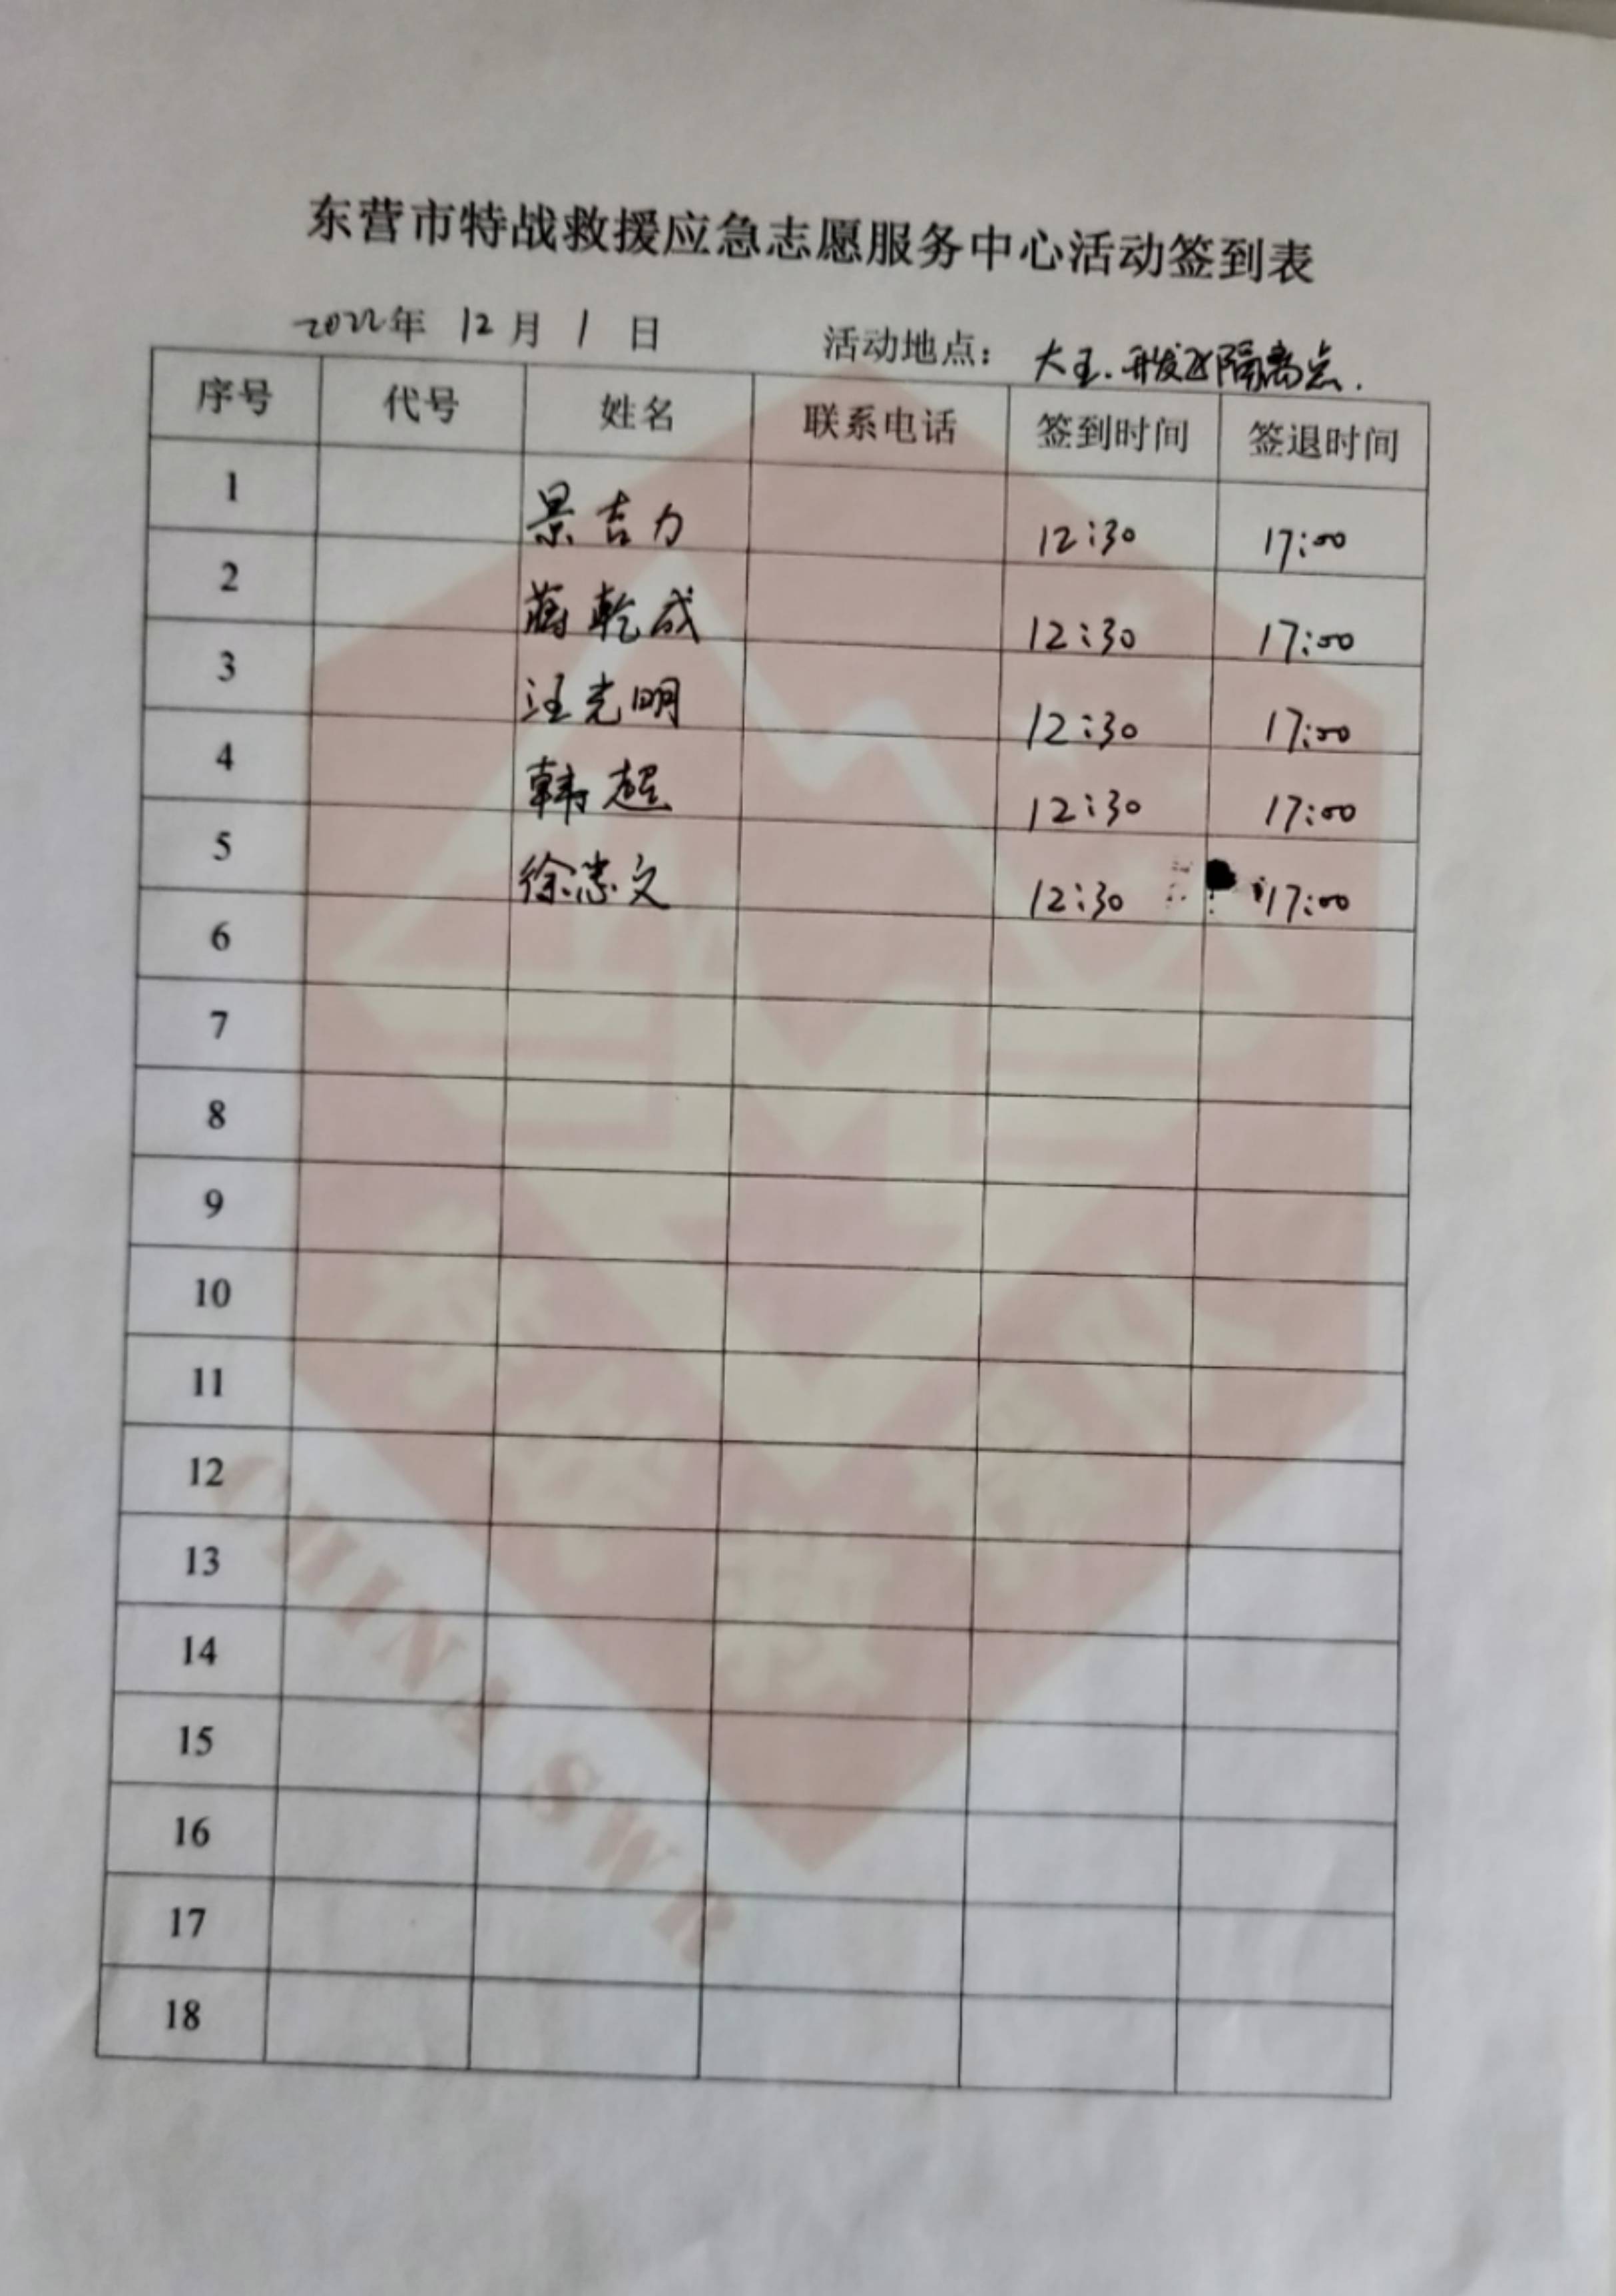 东营市特战救援应急志愿服务中心活动签到表
2022年 12月 1日 活动地点：大王.开发区隔离点.
序号 代号 姓名 联系电话 签到时间 签退时间
1 景吉力 12:30 17:00
2 蒋乾成 12:30 17:00
3 汪光明 12:30 17:00
4 韩超 12:30 17:00
5 徐忠文 12:30 17:00
6
7
8
9
10
11
12
13
14
15
16
17
18
CHINA SWR